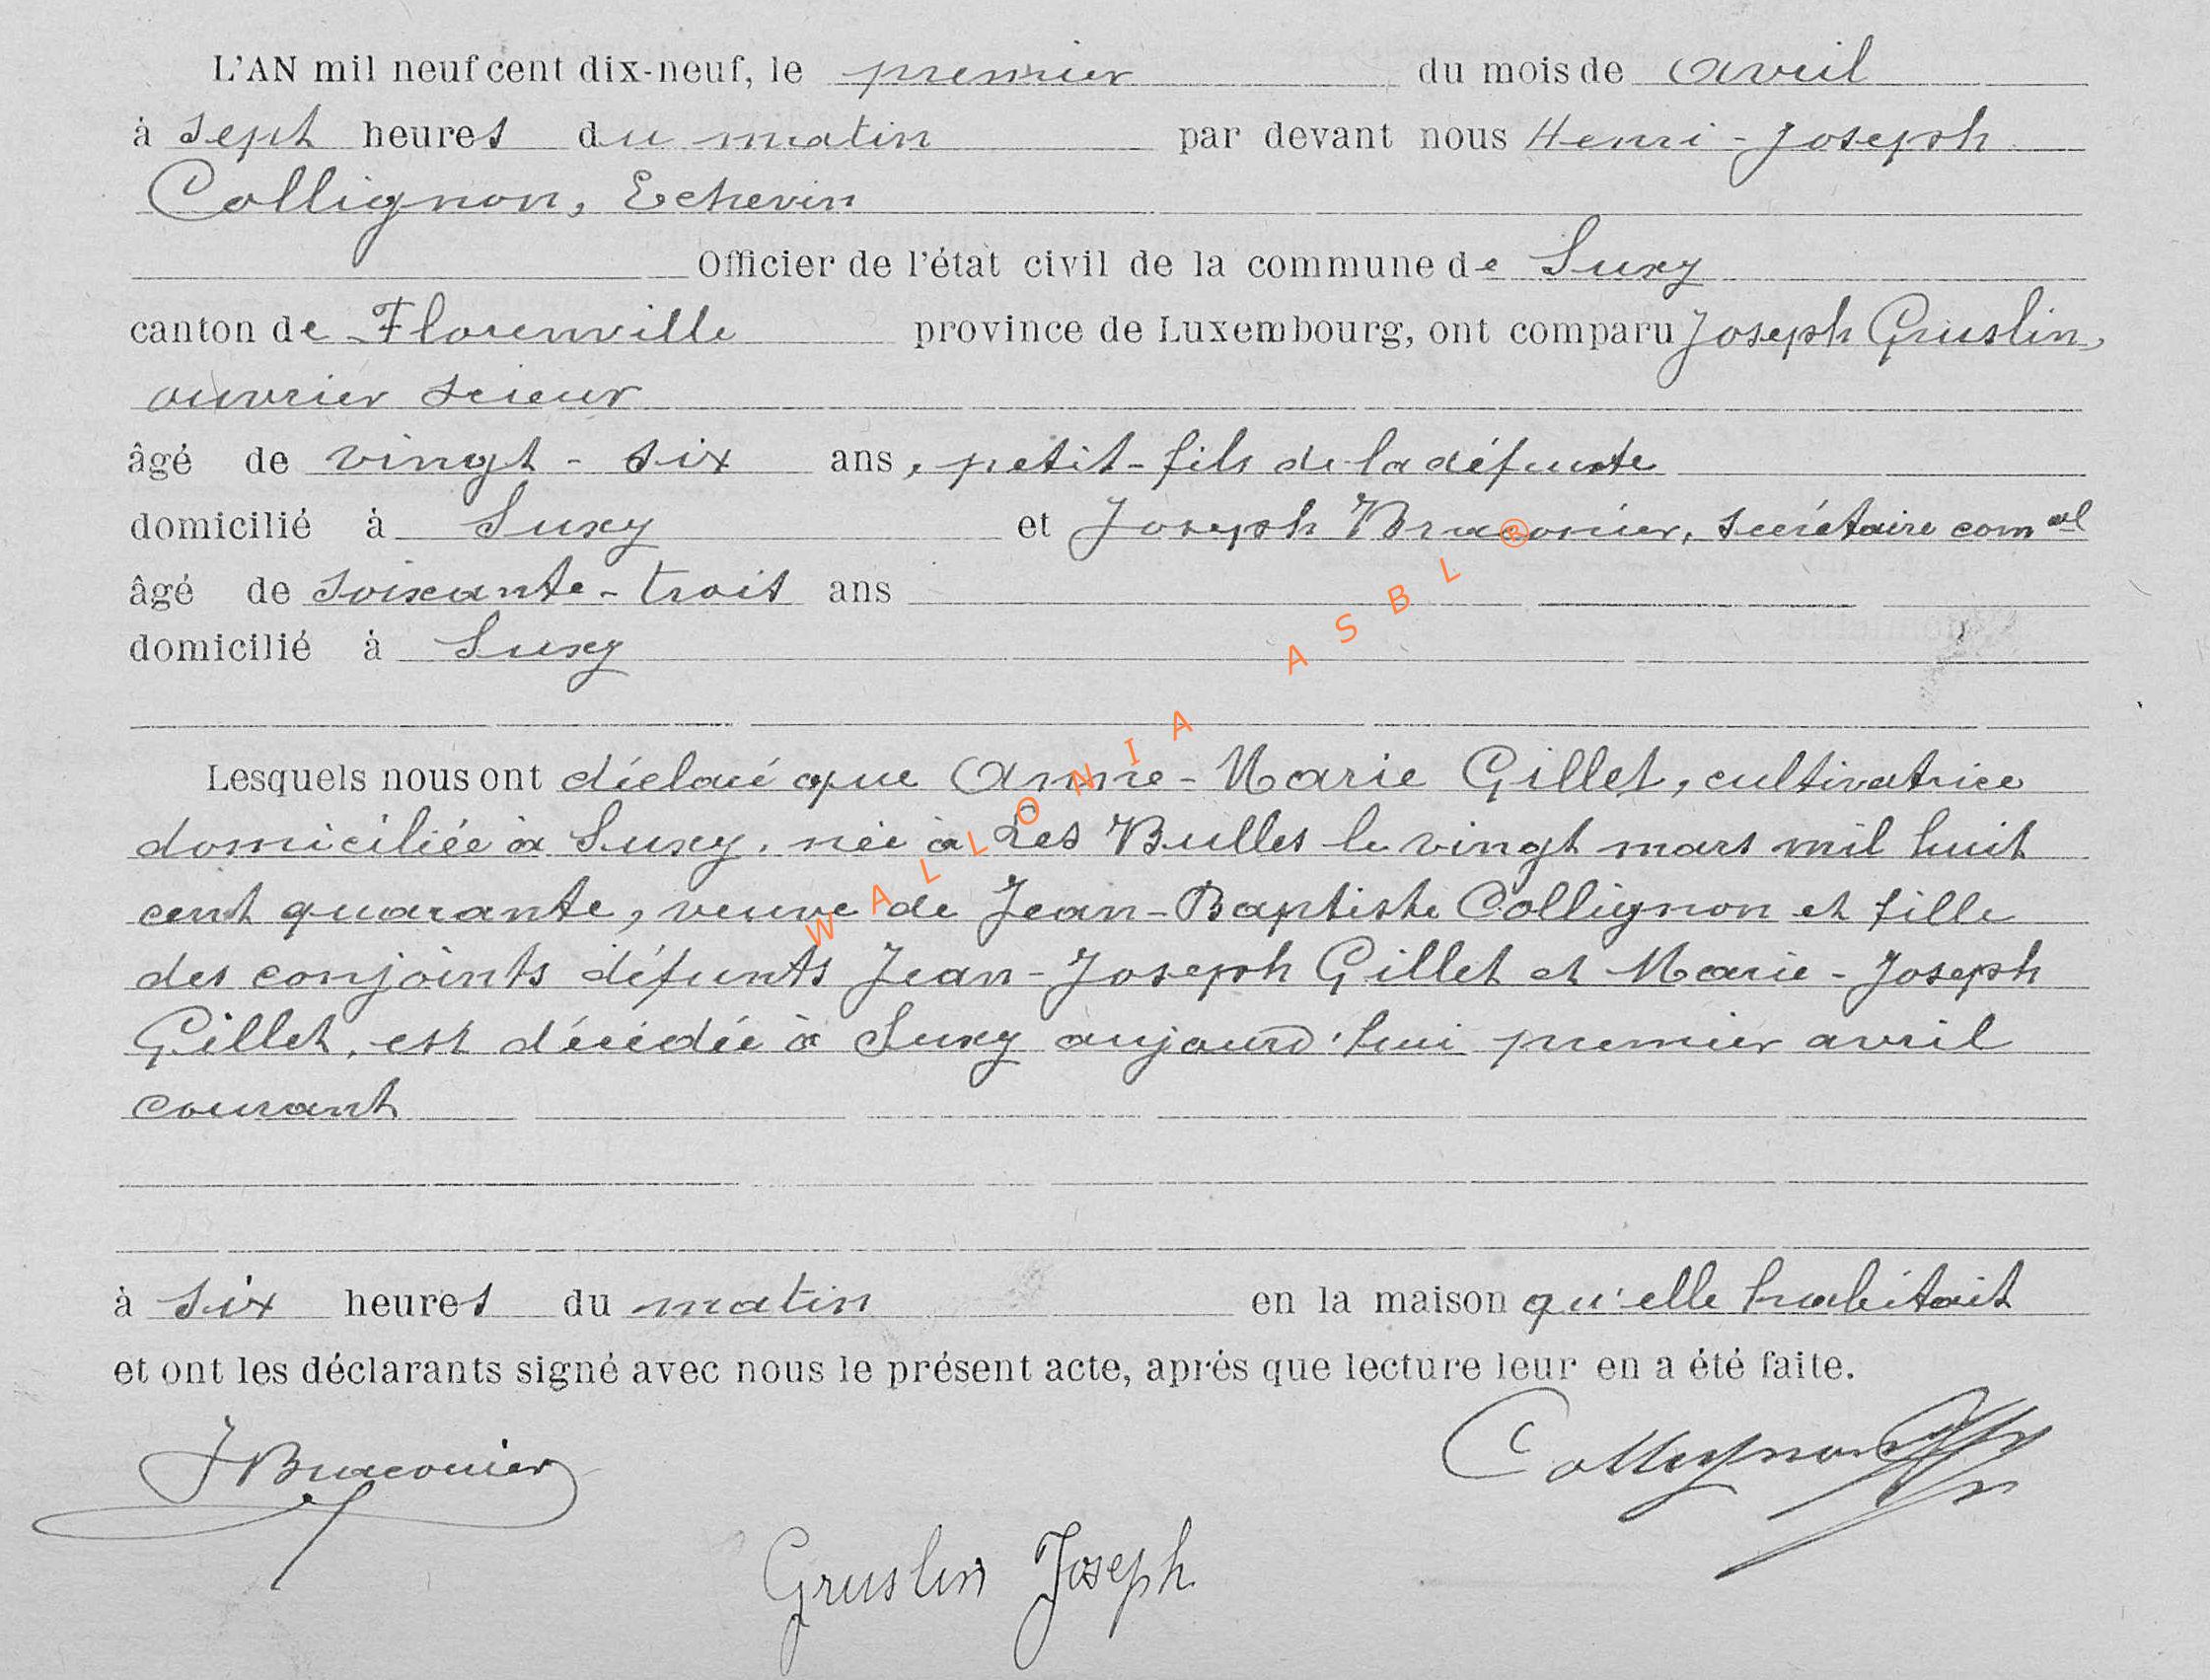 L'AN mil neuf cent dix-neuf, le premier du mois de avril
à sept heures du matin par devant nous Henri-Joseph
Collignon, Echevin
Officier de l'état civil de la commune de Suxy
canton de Florenville province de Luxembourg, ont comparu Joseph Gruslin,
ouvrier scieur
âgé de vingt-six ans, petit-fils de la défunte
domicilié à Suxy et Joseph Braconier, secrétaire comal
âgé de soixante-trois ans
domicilié à Suxy
Lesquels nous ont déclaré que Anne-Marie Gillet, cultivatrice
domiciliée à Suxy, née à Les Bulles le vingt mars mil huit
cent quarante, veuve de Jean-Baptiste Collignon et fille
des conjoints défunts Jean-Joseph Gillet et Marie-Joseph
Gillet, est décédée à Suxy aujourd'hui premier avril
courant
à six heures du matin en la maison qu'elle habitait
et ont les déclarants signé avec nous le présent acte, après que lecture leur en a été faite.
JBraconier
Collignon
Gruslin Joseph
WALLONIA ASBL ®